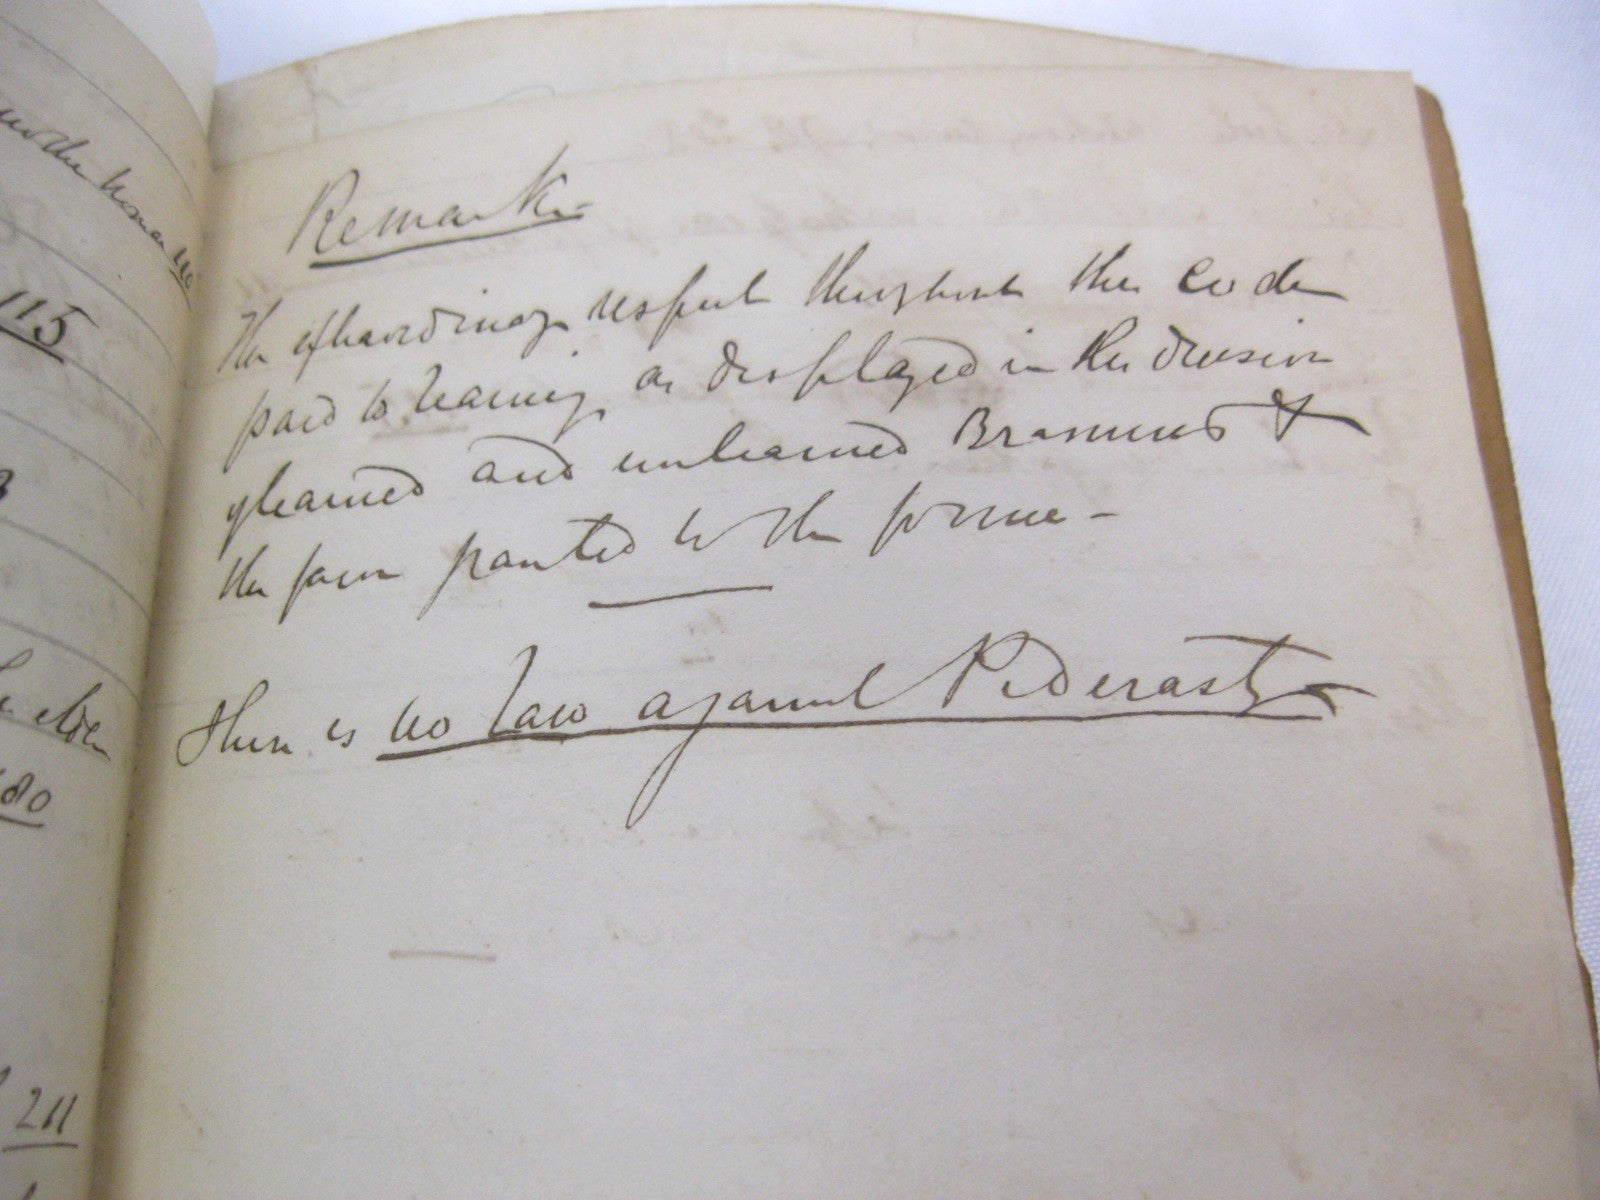 under human
110
115
180
211
Remark
The extraordinary respect throughout the code
paid to learning as displayed in the division
of learned and unlearned Bramins &
the favor granted to the former -
There is no law against Pederasty